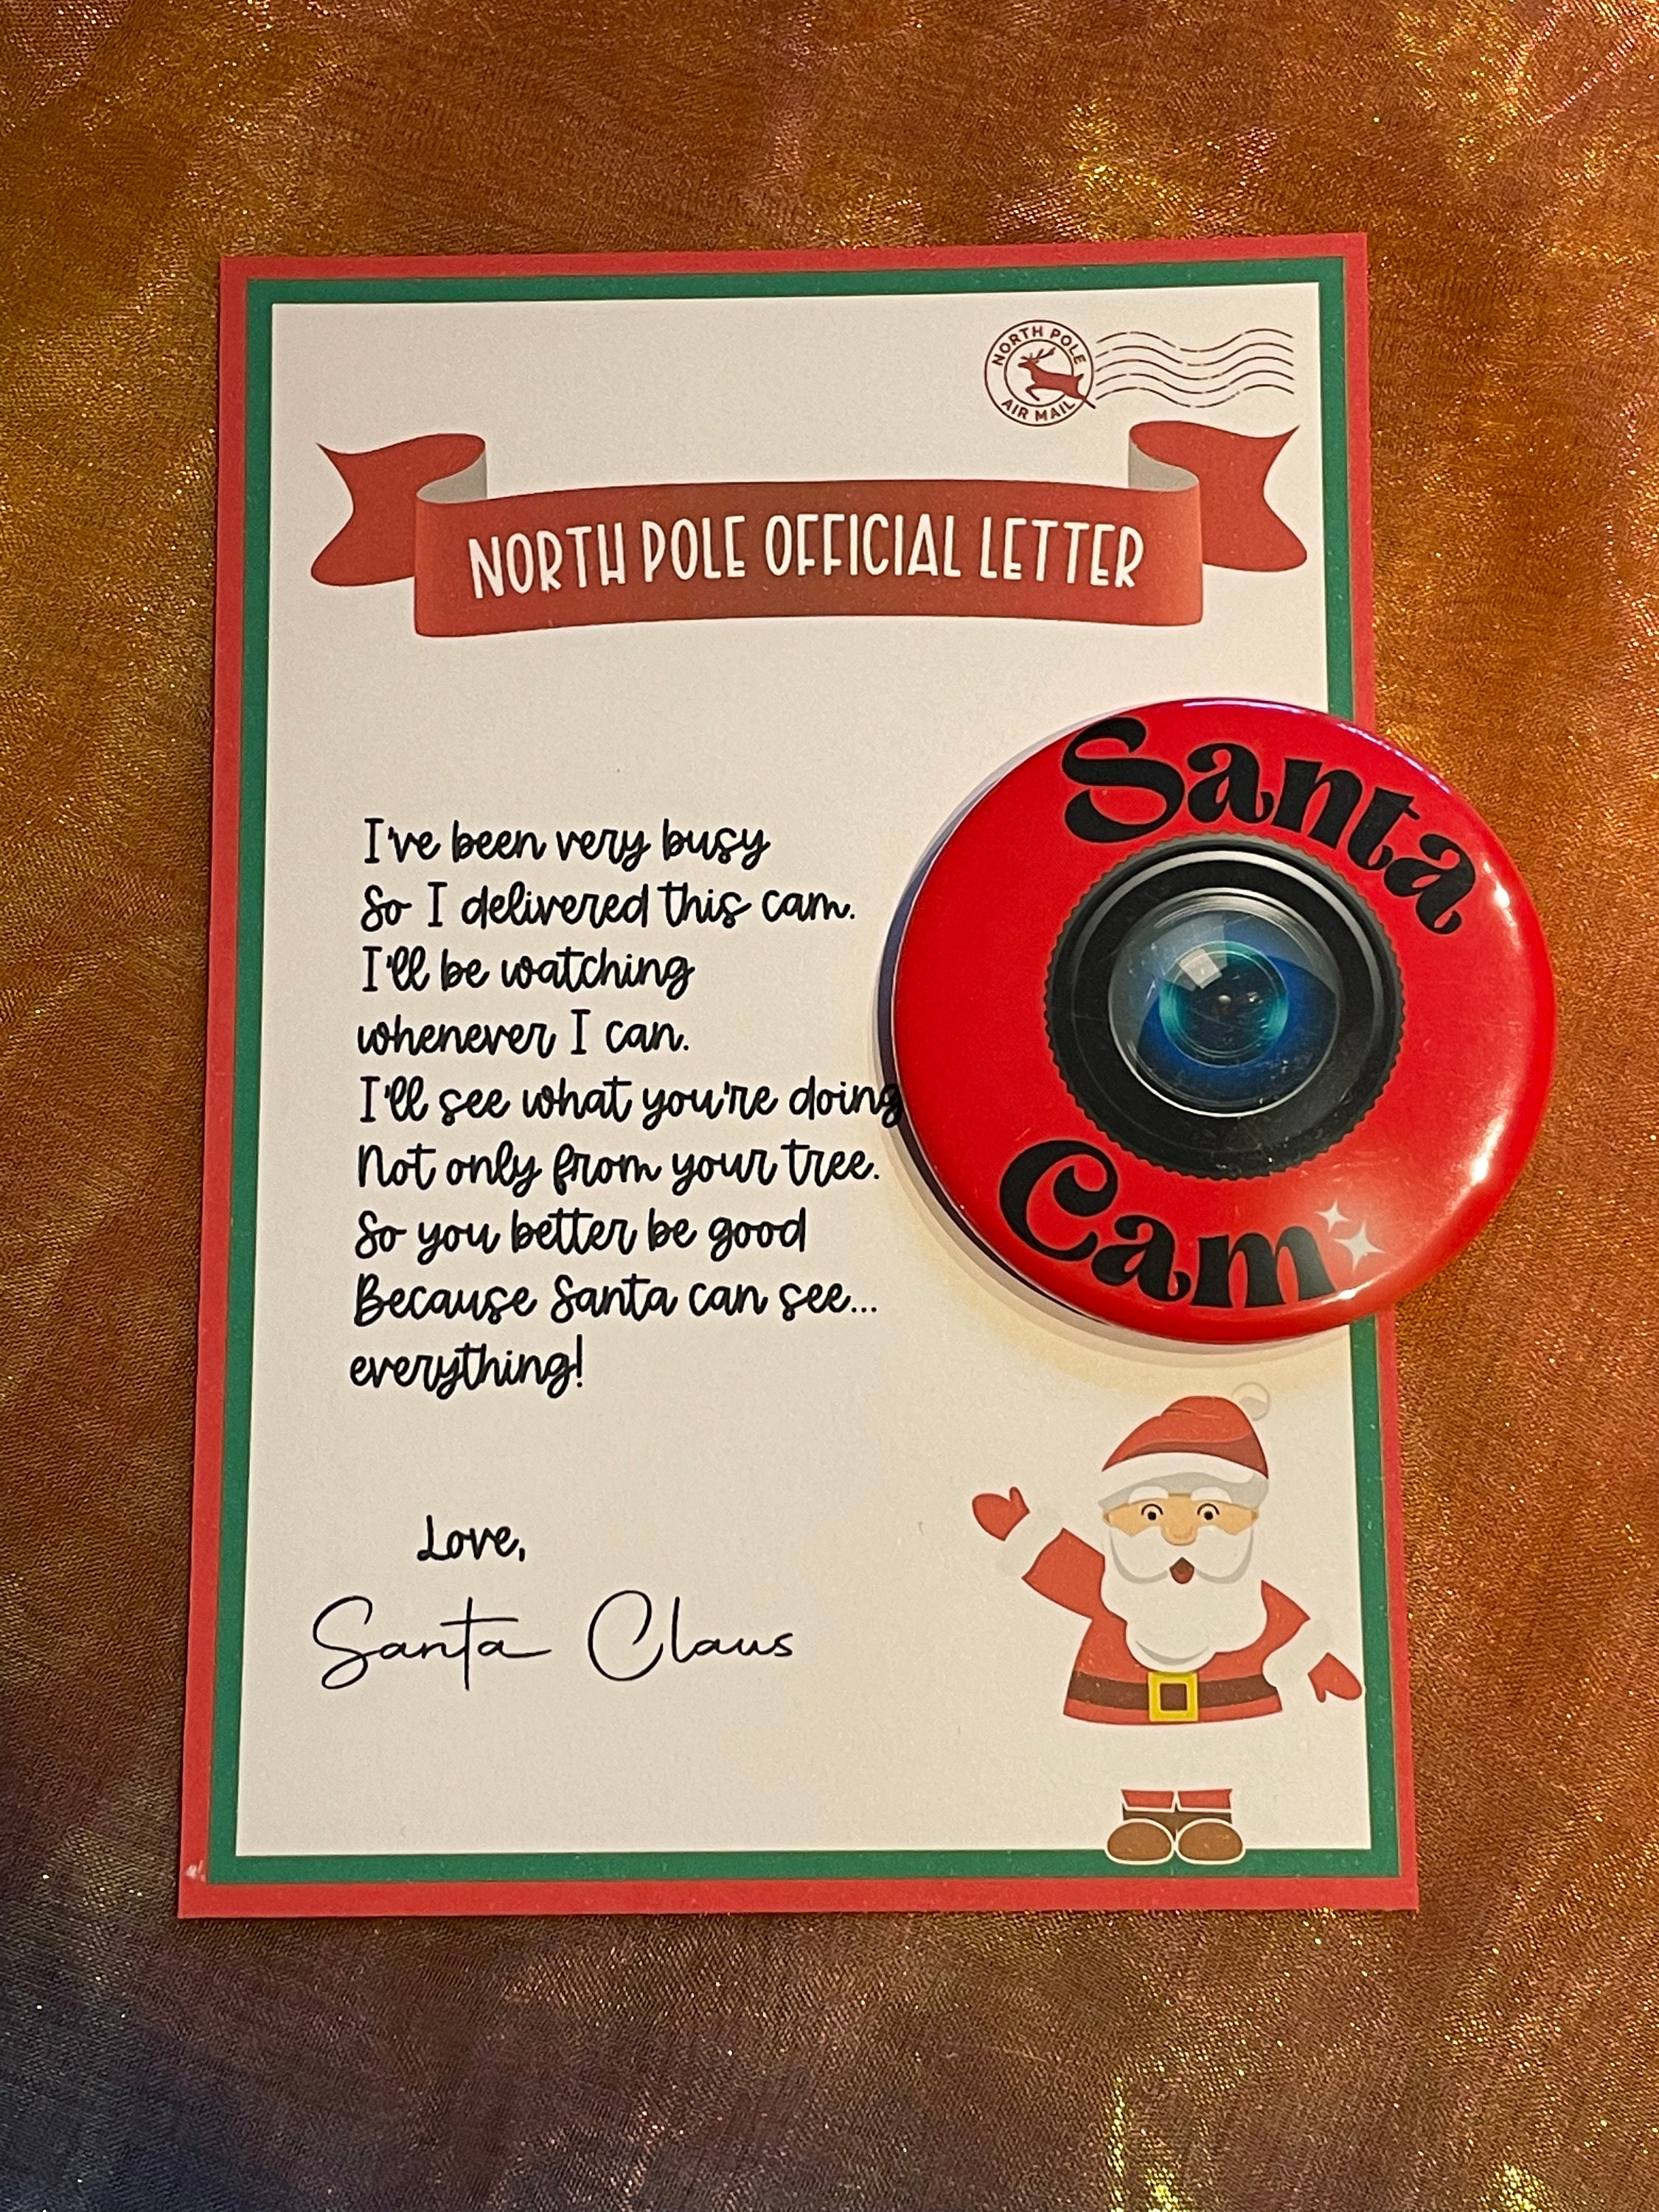 NORTH POLE
AIR MAIL
NORTH POLE OFFICIAL LETTER
I've been very busy
So I delivered this cam.
I'll be watching
whenever I can.
I'll see what you're doing
Not only from your tree.
So you better be good
Because Santa can see...
everything!
Love,
Santa Claus
Santa
Cam